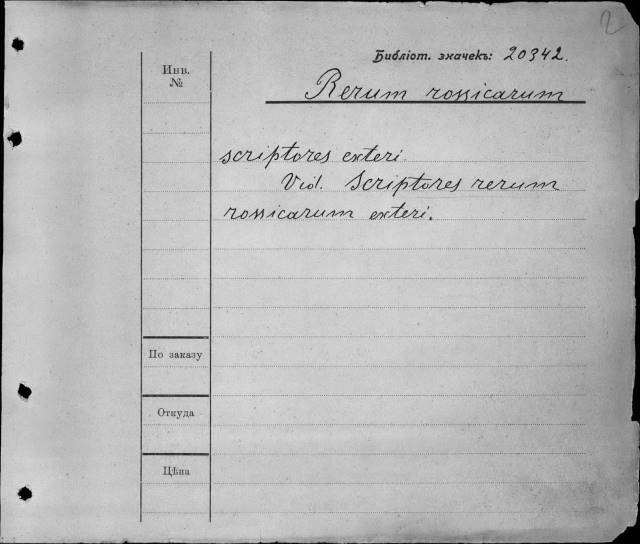 2
Библіот. значекъ: 20342.
Инв.
№
Rerum rossicarum
scriptores exteri.
Vid. Scriptores rerum
rossicarum exteri.
По заказу
Откуда
Цѣна